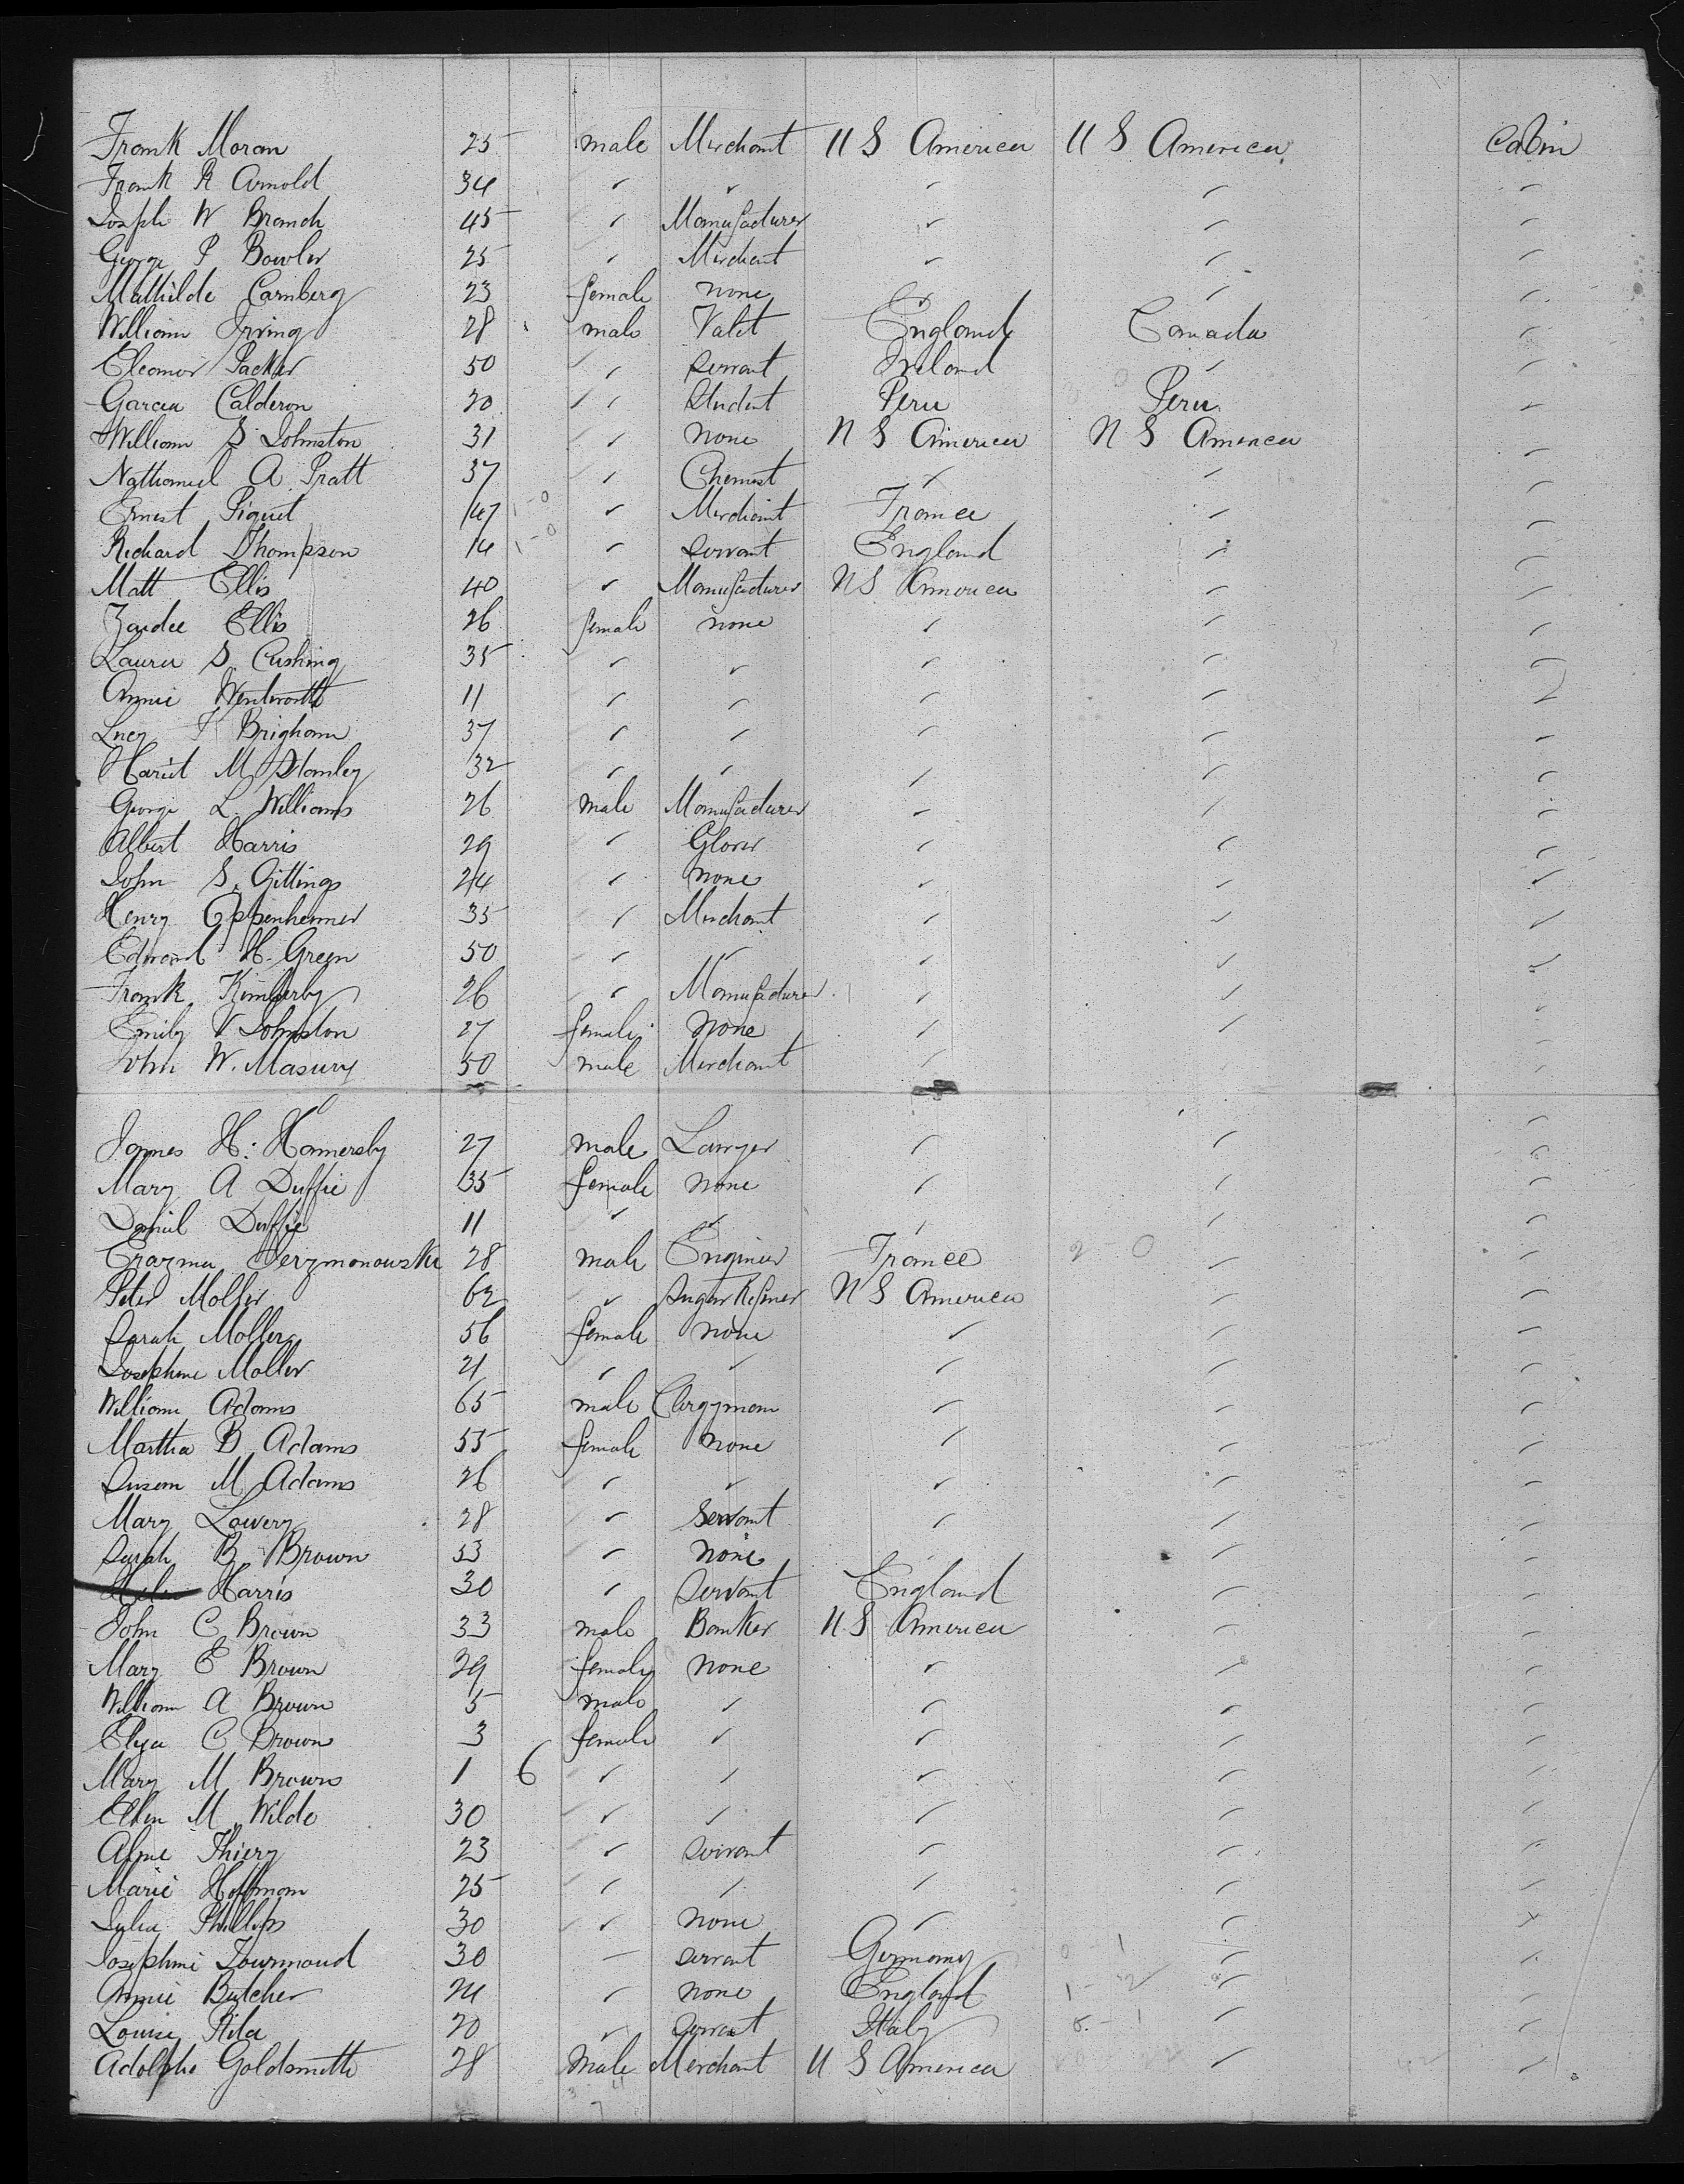 Frank Moran 25 male Merchant U S America U S America Cabin
Frank R Arnold 34 " " " " "
Joseph W Branch 45 " Manufacturer " " "
George P Bowler 25 " Merchant " " "
Mathilde Carnberg 23 female none " " "
William Irving 28 male Valet England Canada "
Eleanor Packer 50 " Servant Ireland " "
Garcia Calderon 20 " Student Peru Peru "
William S Johnston 31 " none U S America U S America "
Nathaniel A Pratt 37 " Chemist " " "
Ernest Piquet 47 " Merchant France " "
Richard Thompson 14 " Servant England " "
Matt Ellis 40 " Manufacturer U S America " "
Zaidee Ellis 26 female none " " "
Laura S Cushing 35 " " " " "
Annie Wentworth 11 " " " " "
Lucy T Brigham 37 " " " " "
Hariet M Stanley 32 " " " " "
George L Williams 26 male Manufacturer " " "
Albert Harris 29 " Glover " " "
John S. Gittings 24 " none " " "
Henry Oppenheimer 35 " Merchant " " "
Edward H. Green 50 " " " " "
Frank Kimberly 26 " Manufacturer " " "
Emily V Johnston 27 female none " " "
John W. Masury 50 male Merchant " " "
James H. Hamersly 27 male Lawyer " " "
Mary A Duffie 35 female none " " "
Daniel Duffie 11 " " " " "
Erazma Jerzmanowski 28 male Engineer France " "
Peter Moller 62 " Sugar Refiner U S America " "
Sarah Moller 56 female none " " "
Josephine Moller 21 " " " " "
William Adams 65 male Clergyman " " "
Martha B Adams 55 female none " " "
Susan M Adams 26 " " " " "
Mary Lowery 28 " Servant " " "
Sarah B Brown 53 " none " " "
Harris 30 " Servant England " "
John C Brown 33 male Banker U S America " "
Mary E Brown 29 female none " " "
William A Brown 5 male " " " "
Elya C Brown 3 female " " " "
Mary M Brown 1 6 " " " " "
Ellen M Wilde 30 " " " " "
Aline Thiery 23 " servant " " "
Marie Hoffman 25 " " " " "
Julia Phillips 30 " none " " "
Josephine Tournaud 30 " servant Germany " "
Annie Butcher 24 " none England " "
Louise Rita 20 " servant Italy " "
Adolphe Goldsmith 28 Male Merchant U S America " "